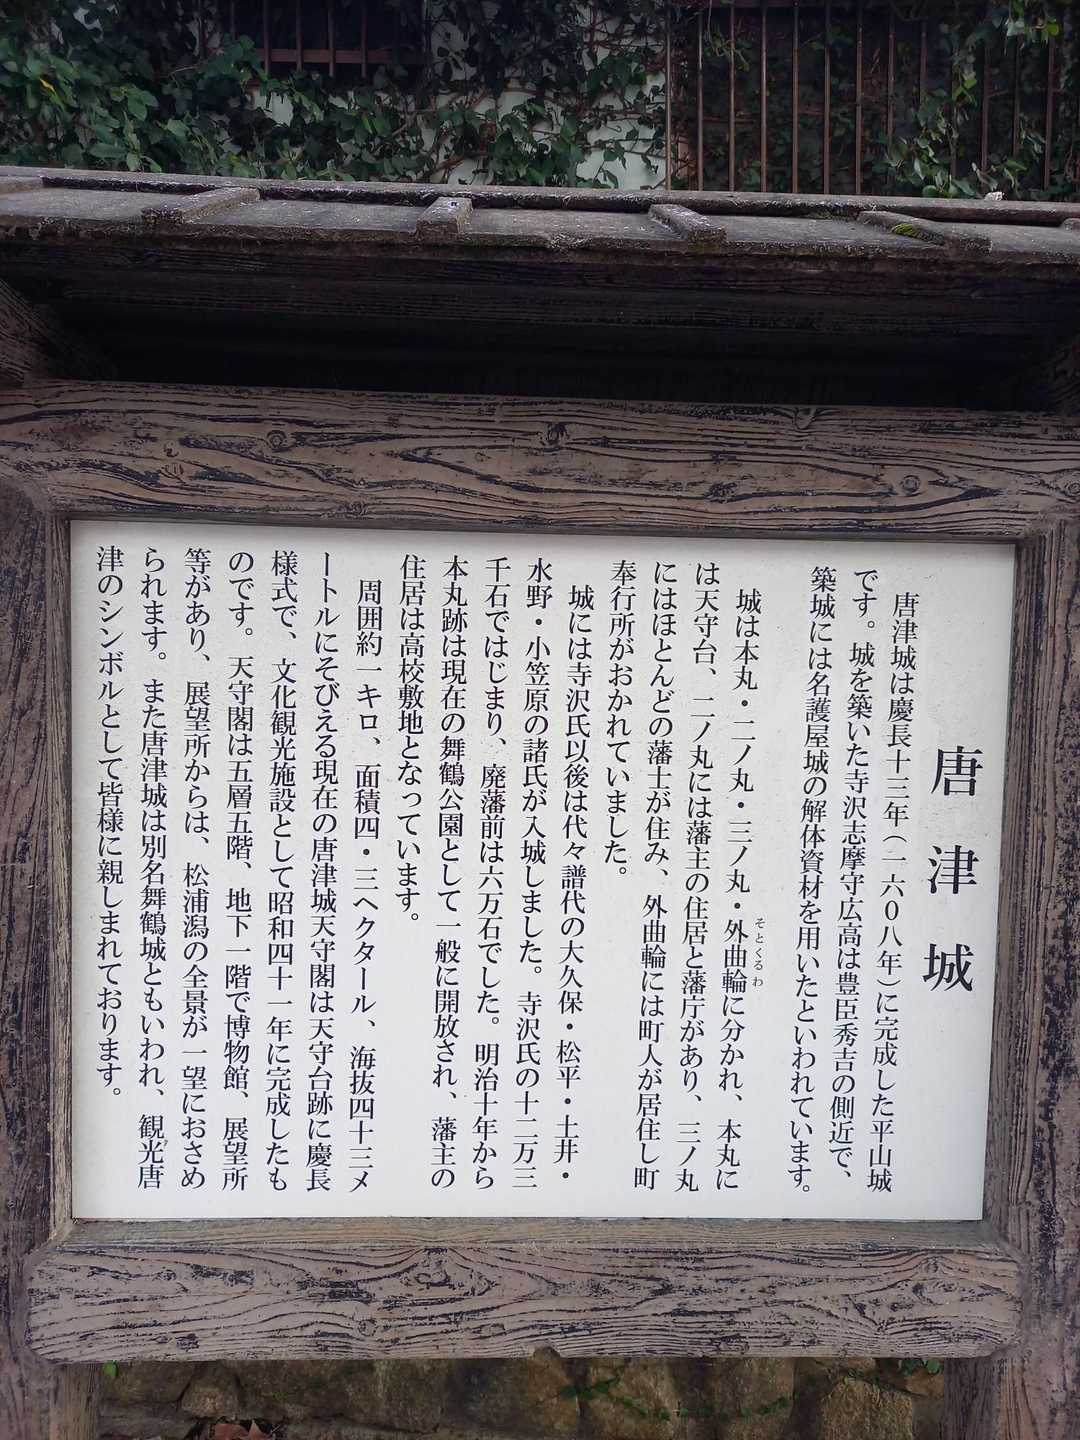 唐津城
唐津城は慶長十三年(一六0八年)に完成した平山城
です。城を築いた寺沢志摩守広高は豊臣秀吉の側近で、
築城には名護屋城の解体資材を用いたといわれています。
城は本丸・二ノ丸・三ノ丸・外曲輪に分かれ、本丸に
そとくるわ
は天守台、二ノ丸には藩主の住居と藩庁があり、三ノ丸
にはほとんどの藩士が住み、外曲輪には町人が居住し町
奉行所がおかれていました。
城には寺沢氏以後は代々譜代の大久保・松平・土井・
水野・小笠原の諸氏が入城しました。寺沢氏の十二万三
千石ではじまり、廃藩前は六万石でした。明治十年から
本丸跡は現在の舞鶴公園として一般に開放され、藩主の
住居は高校敷地となっています。
周囲約一キロ、面積四・三ヘクタール、海抜四十三メ
ートルにそびえる現在の唐津城天守閣は天守台跡に慶長
様式で、文化観光施設として昭和四十一年に完成したも
のです。天守閣は五層五階、地下一階で博物館、展望所
等があり、展望所からは、松浦潟の全景が一望におさめ
られます。また唐津城は別名舞鶴城ともいわれ、観光唐
津のシンボルとして皆様に親しまれております。